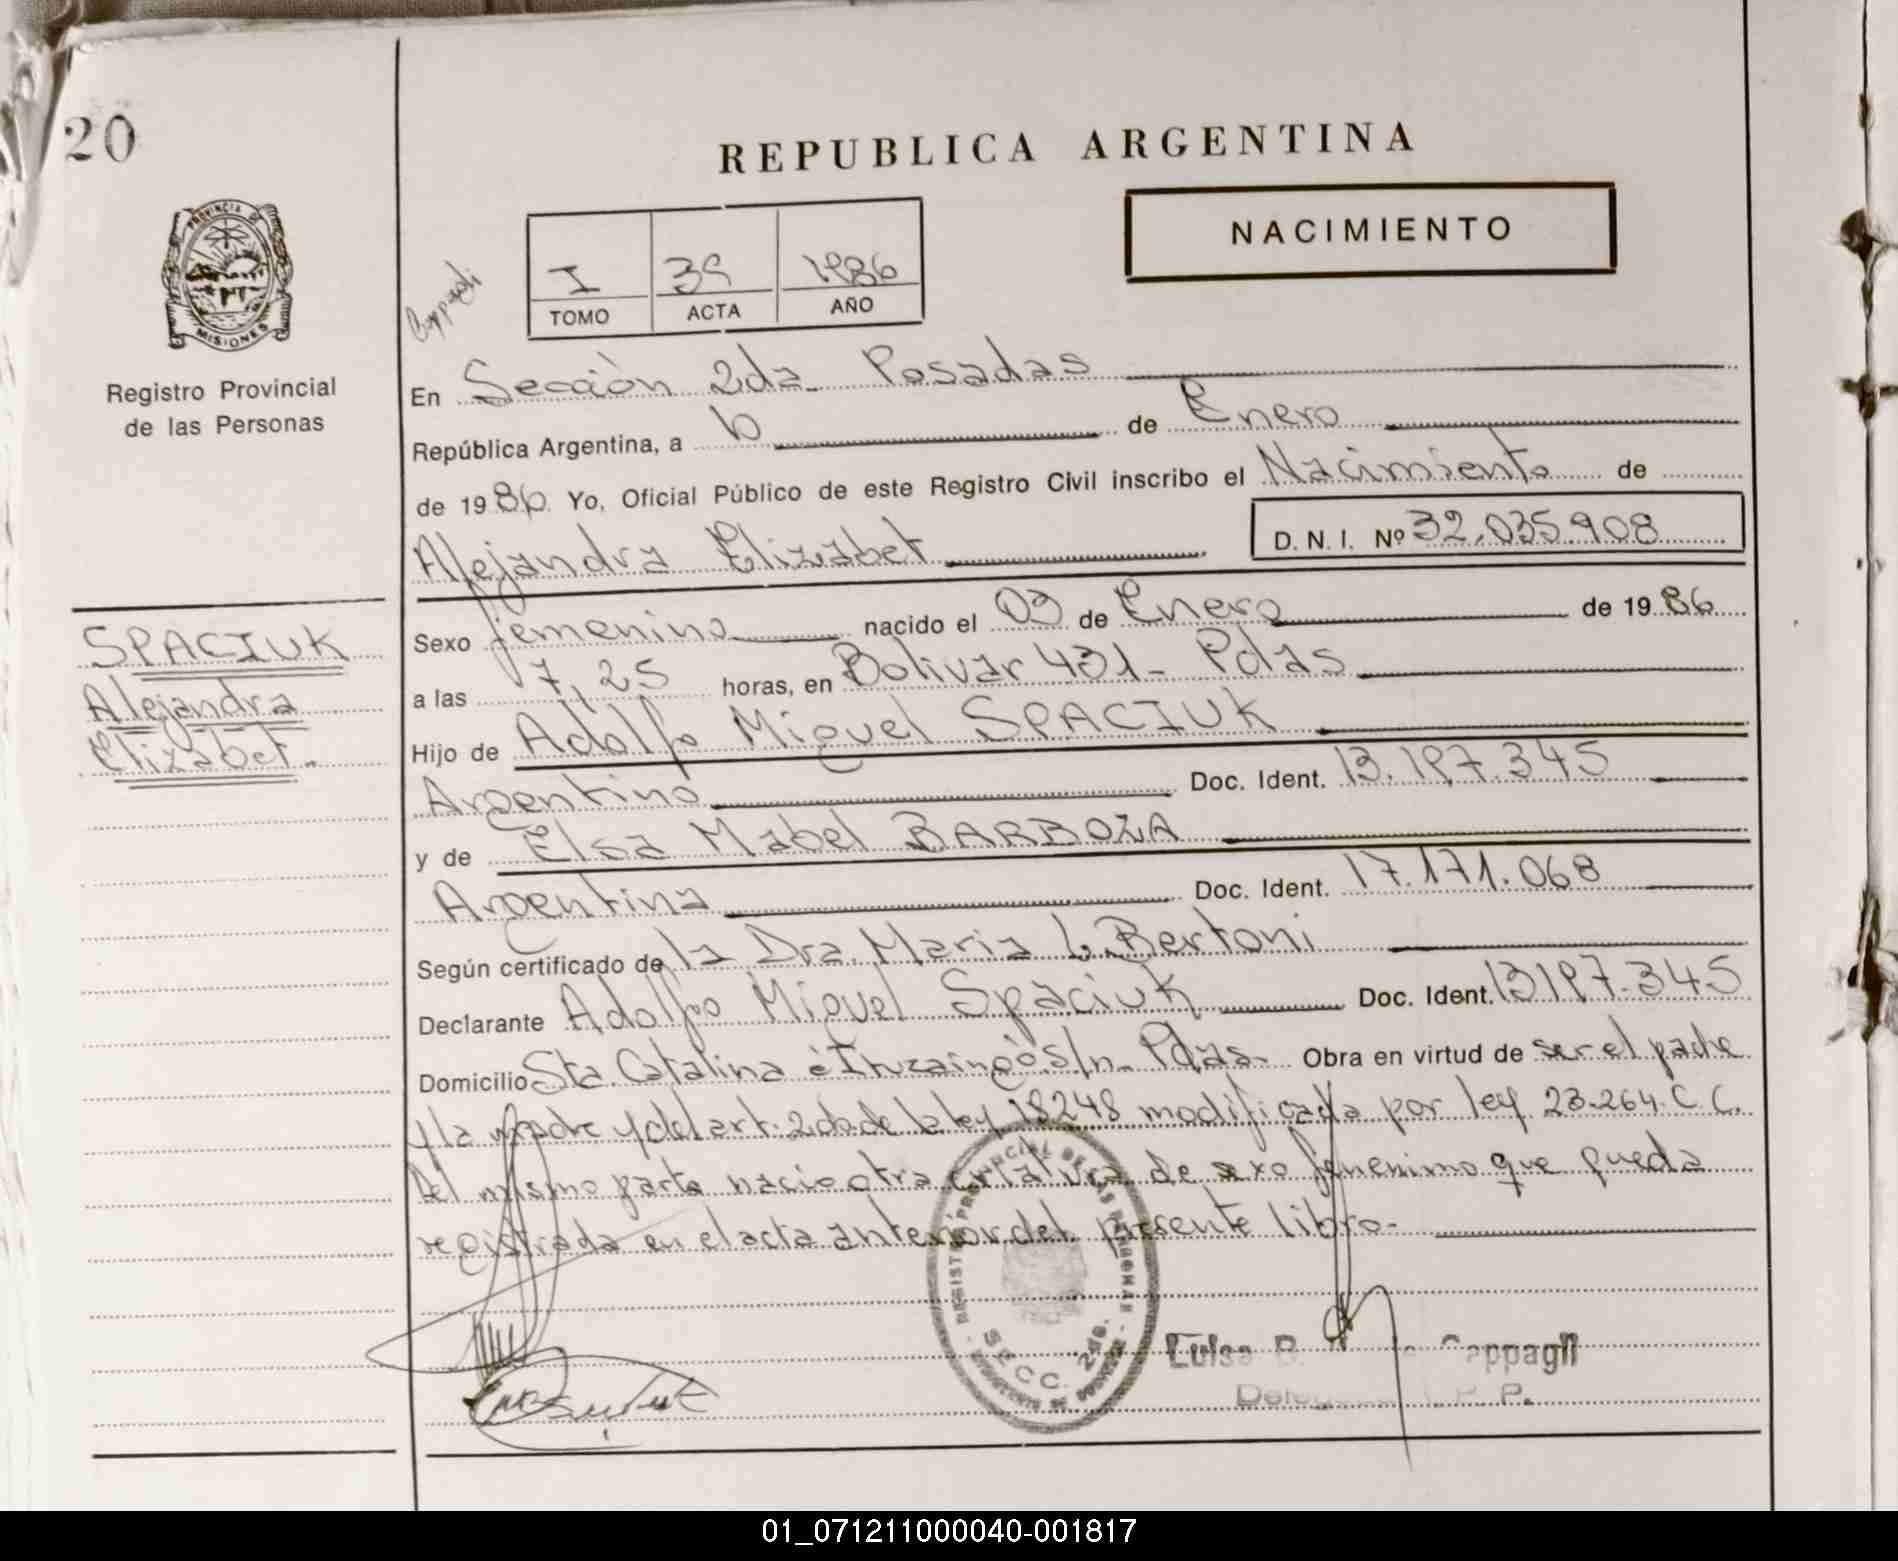 20
REPUBLICA ARGENTINA
NACIMIENTO
PROVINCIA DE
MISIONES
Registro Provincial
de las Personas
Cappagli
I 39 1986
TOMO ACTA AÑO
En Sección 2da. Posadas
República Argentina, a 6 de Enero
de 1986 Yo, Oficial Público de este Registro Civil inscribo el Nacimiento de
Alejandra Elizabet D. N. I. Nº 32.035.908
SPACIUK
Alejandra
Elizabet.
Sexo femenino nacido el 03 de Enero de 1986
a las 7,25 horas, en Bolivar 431- Pdas
Hijo de Adolfo Miguel SPACIUK
Argentino Doc. Ident. 13.197.345
y de Elsa Mabel BARBOZA
Argentina Doc. Ident. 17.171.068
Según certificado de la Dra. Maria L. Bertoni
Declarante Adolfo Miguel Spaciuk Doc. Ident. 13197.345
Domicilio Sta. Catalina é Ituzaingó S/n- Pdas- Obra en virtud de ser el padre
y la madre y del art. 2do de la ley 18248 modificada por ley 23.264. C.C.
Del mismo parto nacio otra criatura de sexo femenimo que queda
registrada en el acta anterior del presente libro-
REGISTRO PROVINCIAL DE LAS PERSONAS
SECC. 2da.
Luisa B. Cappagli
P. P.
01_071211000040-001817